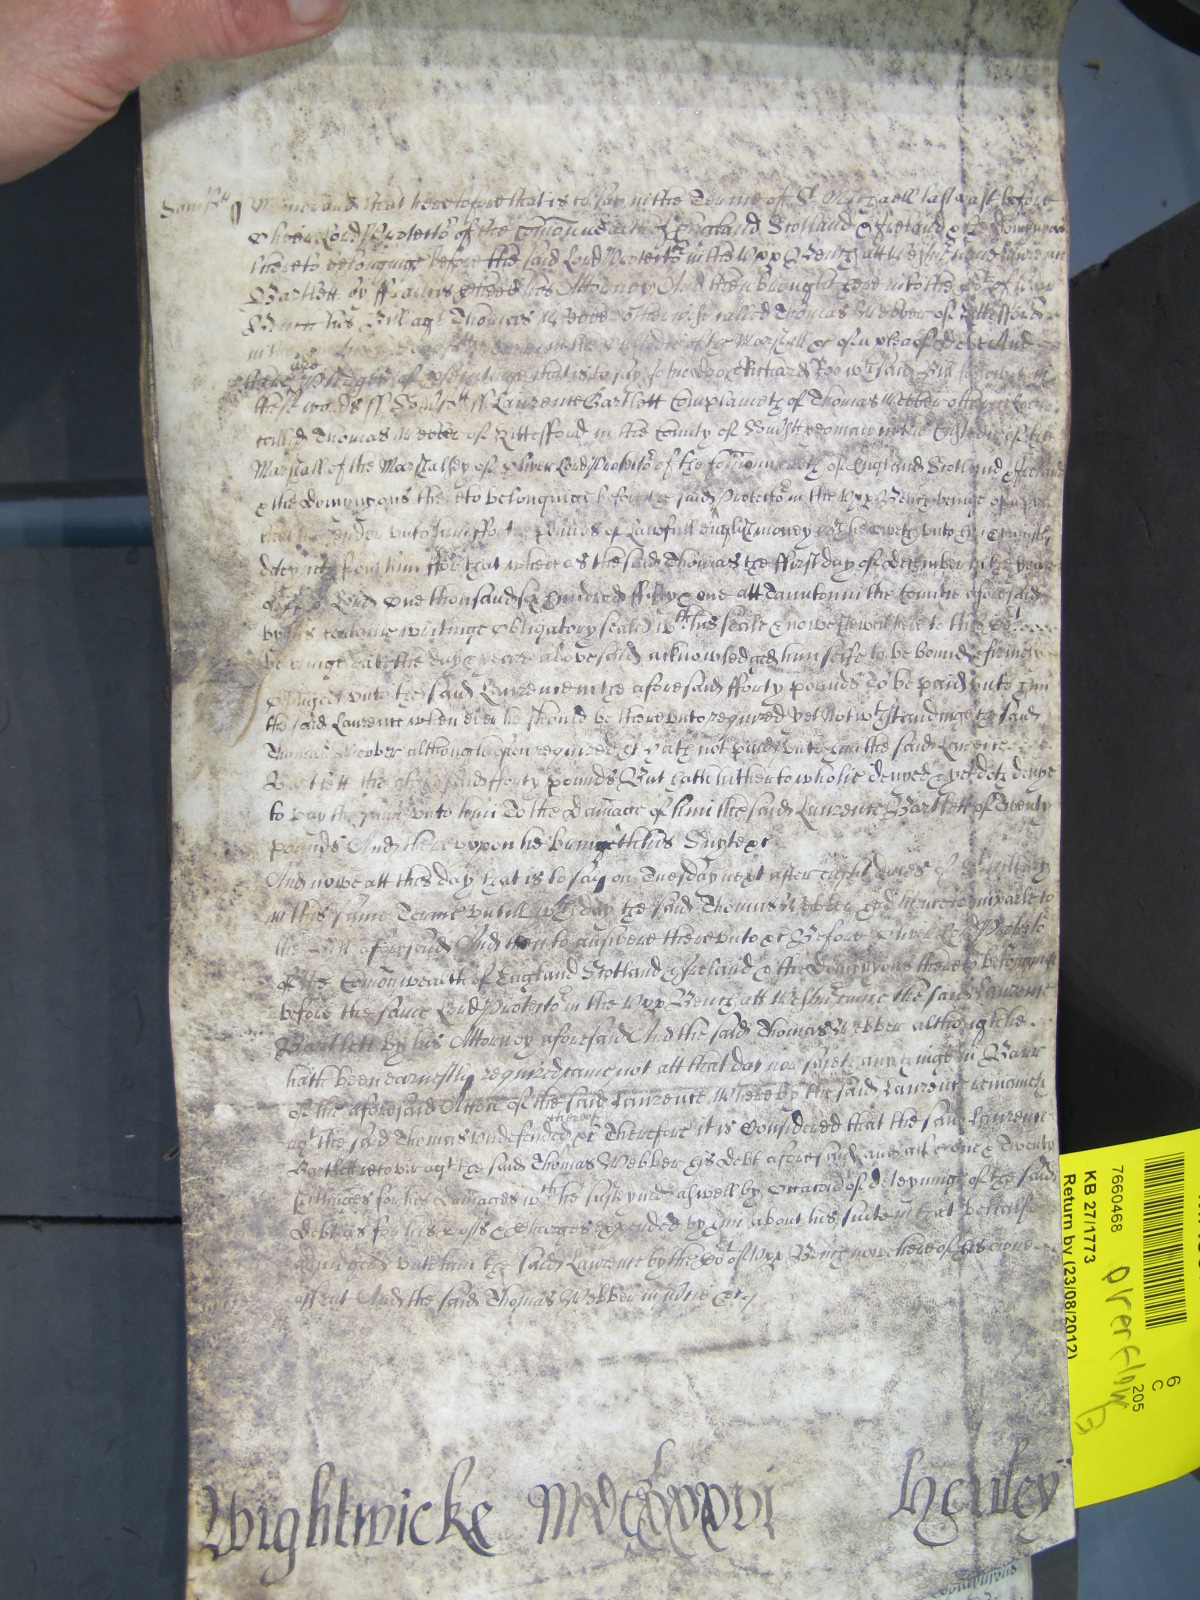 Somsett Memorand that heretofore that is to say in the Terme of St Michaell last past before
Oliver Lord Protector of the Comonwealth of England Scotland & Ireland & the Domynyons
thereto belonginge before the said Lord Protector in the Upp Bench att Westminster came Laurence
Bartlett by his Attorney And then brought here into the Cort of Upp
Bench his Bill agt Thomas Webber otherwise called Thomas Webber of Kittesford
in the of the Marshall &c of a plea of Debt And
there are Pledges of that is to say John doe & Richard Roo wch said Bill
these words ss Somsett ss Laurence Bartlett Complaineth of Thomas Webber otherwise
called Thomas Webber of Kittesford in the County of Somsett yeoman in the Custodie of the
Marshall of the Marshalsey of Oliver Lord Protector of the Comonwealth of England Scotland & Ireland
& the Domynyons thereto belonginge before the said Protector in the Upp Bench beinge of a plea
that he render unto him fforty pounds of Lawfull English money wch he oweth unto him & unjustly
deteyneth from him ffor that whereas the said Thomas the ffirst day of December in the yeare
of or Lord One thousand six hundred ffifty & one att Taunton in the Countie aforesaid
by his certaine writinge Obligatory seald wth his seale & nowe shewed here to the Cort
beareinge date the day & yeere abovesaid acknowledged himselfe to be bound & firmely
obliged unto the said Laurence in the aforesaid fforty pounds To be paid unto him
the said Laurence when ever he should be thereunto required yet Notwthstandinge the said
Thomas Webber although often required &c hath not paid unto him the said Laurence
Bartlett the aforesaid fforty pounds But hath hitherto wholie denyed & yet doth denye
to pay the same unto him To the Damage of him the said Laurence Bartlett of Twenty
pounds And thereuppon he bringeth this Suyte &c
And nowe att this day that is to say on Tuesday next after eight dayes of
in this same Terme untill wch day the said Thomas Webber had licence to imparle to
the Bill aforesaid And then to answere thereunto &c Before Oliver Lord Protector
of the Comonwealth of England Scotland & Ireland & the Domynyons thereto belonginge
before the same Lord Protector in the Upp Bench att Westminster came the said Laurence
Bartlett by his Attorney aforesaid And the said Thomas Webber although he
hath been earnestly required came not att that day nor saieth any thinge in Barr
of the aforesaid Accon of the said Laurence Whereby the said Laurence remaineth
agt the said Thomas undefended thereof &c Therefore it is Considered that the said Laurence
Bartlett recover agt the said Thomas Webber his debt aforesaid and alsoe Twenty
shillinges for his Damages wch he susteyned aswell by occasion of deteyninge of the said
debt as for his Costs & Charges expended by him about his suite in that behalfe
adjudged unto him the said Laurence by the Cort of Upp Bench nowe here of his owne
assent And the said Thomas Webber in mercie &c
Wightwicke MDCXXXVI Henley
7660468
KB 27/1773
Return by (23/08/2012)
Overflow
B
6
C
205